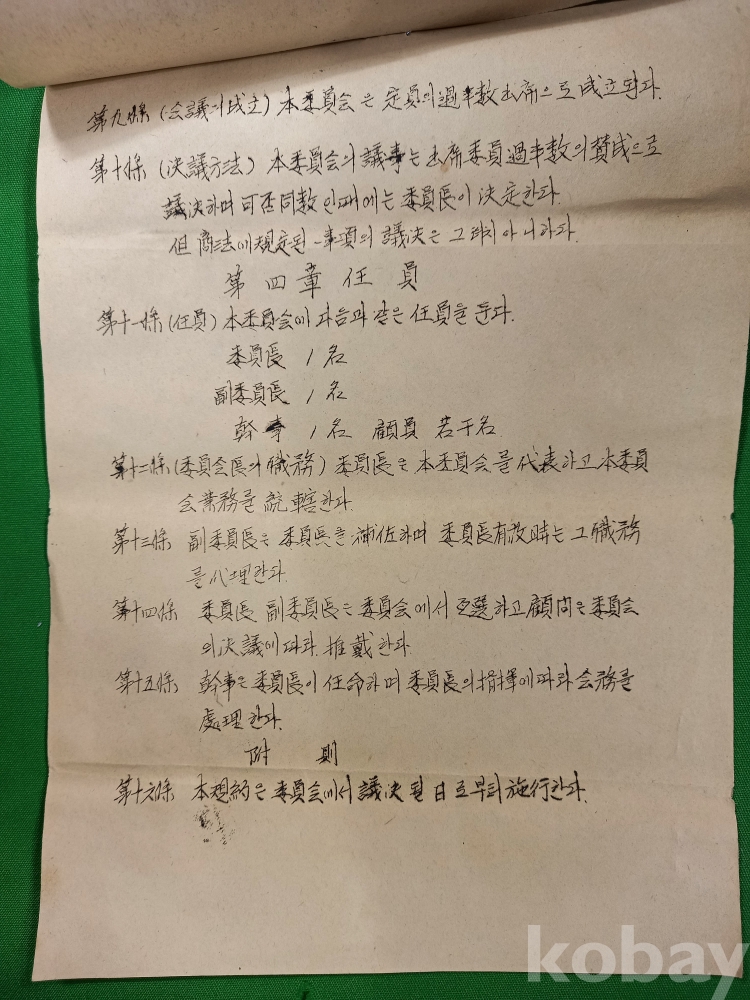 第九條 (会議의 成立) 本委員会는 定員의 過半数 出席으로 成立된다.
第十條 (決議方法) 本委員会의 議事는 出席委員 過半数의 賛成으로
議決하며 可否同数인 때에는 委員長이 決定한다.
但 商法에 規定된 事項의 議決은 그러하지 아니하다.
第四章 任員
第十一條 (任員) 本委員会에 다음과 같은 任員을 둔다.
委員長 1名
副委員長 1名
幹事 1名 顧問 若干名
第十二條 (委員会長의 職務) 委員長은 本委員会를 代表하고 本委員
会業務를 統轄한다.
第十三條 副委員長은 委員長을 補佐하며 委員長有故時는 그 職務
를 代理한다.
第十四條 委員長 副委員長은 委員会에서 互選하고 顧問은 委員会
의 決議에 따라 推戴한다.
第十五條 幹事는 委員長이 任命하며 委員長의 指揮에 따라 会務를
處理한다.
附則
第十六條 本規約은 委員会에서 議決된 日로부터 施行한다.
kobay